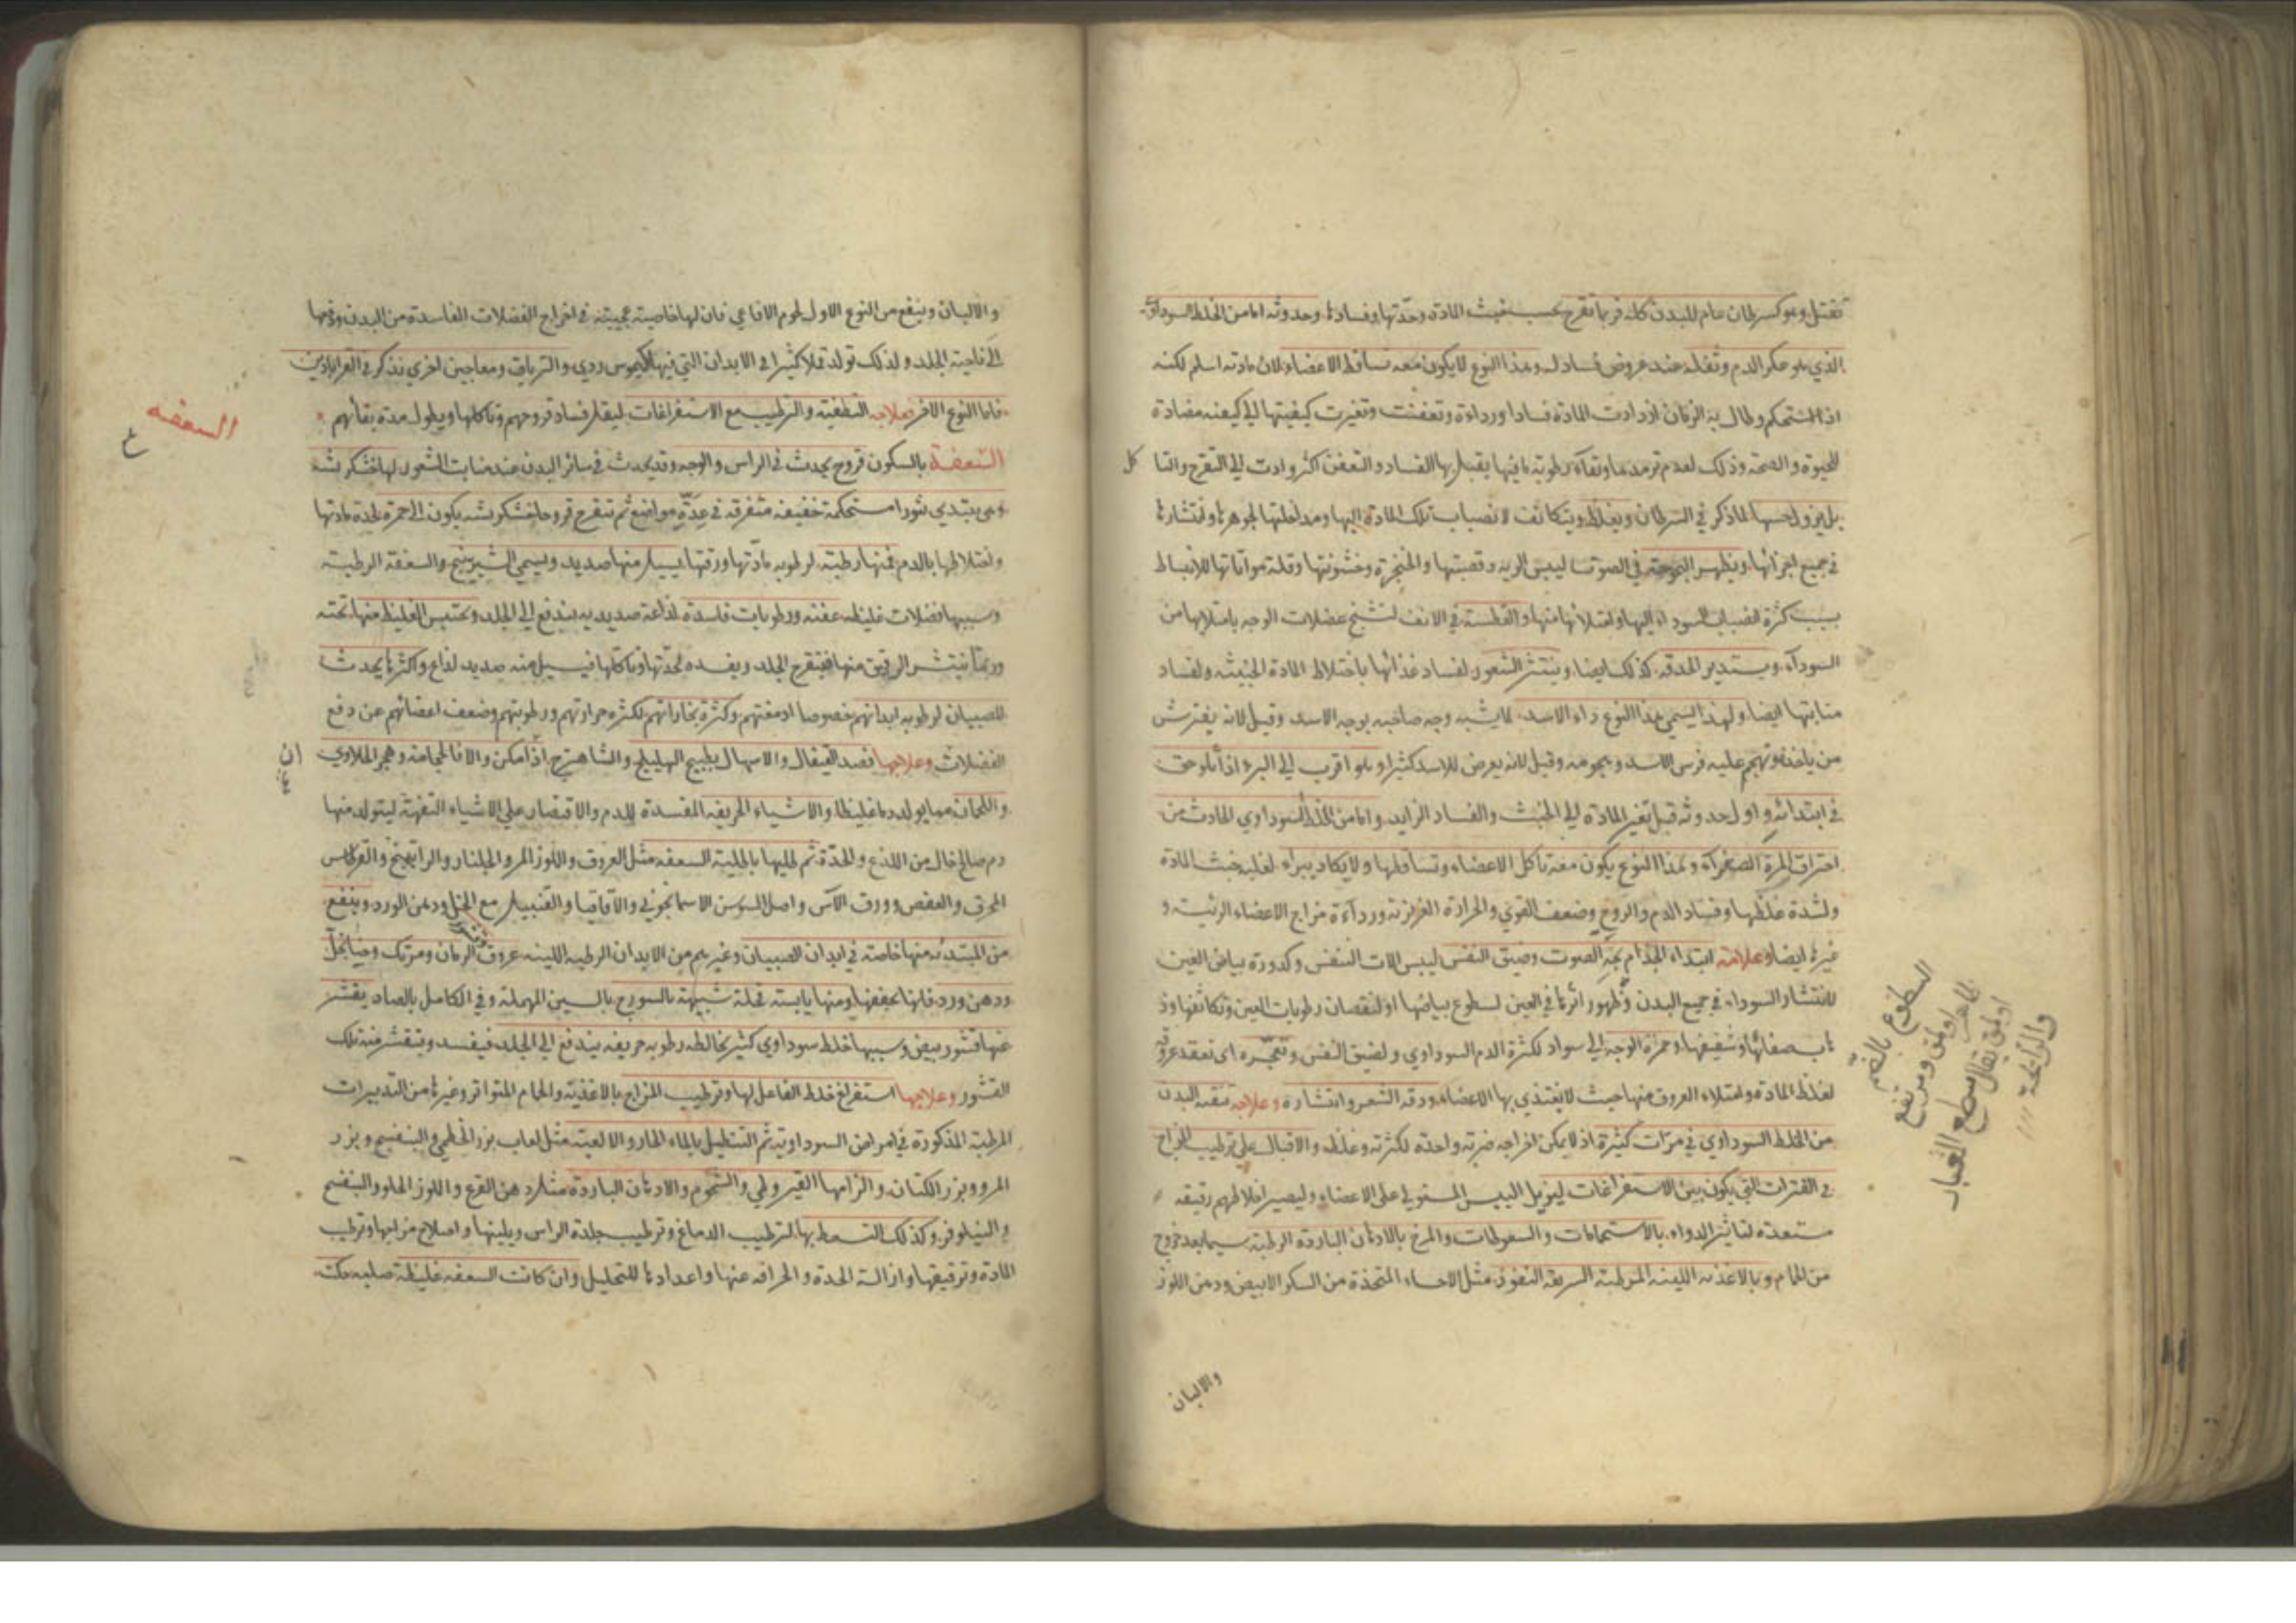 تقتل وهو كسرطان عام للبدن كله فربما تقرح بحسب خبث المادة وحدتها وفسادها وحدوثه اما من الخلط السوداوي
الذي هو عكر الدم وثفله عند عروض فساد له وهذا النوع لا يكون معه تساقط الاعضاء لان مادته اسلم لكنه
اذا استحكم وطال به الزمان ازدادت المادة فسادا ورداءة وتعفنت وتغيرت كيفيتها الي كيفيته مضادة
للحيوة والصحة وذلك لعدم ترمدها وبقآء رطوبة ما فيها يقبل بها الفساد والتعفن اكثر وادت الي التقرح والتا كل
بل يزول حسها لما ذكر في السرطان ويغلظ ويتكاثف لانصباب تلك المادة اليها ومداخلتها لجوهرها وانتشارها
في جميع اجزائها ويظهر البحوحة في الصوت ليبس الرية وقصبتها والحنجرة وخشونتها وقلة مواتاتها للانبساط
بسبب كثرة انصباب السوداء اليها وامتلائها منها والفطسة في الانف لتشنج عضلات الوجه بامتلائها من
السودآء ويستدير الحدقة كذلك ايضا وينتثر الشعور لفساد غذائها باختلاط المادة الخبيثة ولفساد
منابتها ايضا ولهذا يسمي هذا النوع داء الاسد لما يشبه وجه صاحبه بوجه الاسد وقيل لانه يفترش
من ياخذه وتهجم عليه فرس الاسد وهجومه وقيل لانه يعرض للاسد كثيرا وهو اقرب الي البرء اذا لحق
في ابتدائه واول حدوثه قبل تغير المادة الي الخبث والفساد الزايد واما من الخلط السوداوي الحادث من
احتراق المرة الصفرآء وهذا النوع يكون معه تاكل الاعضاء وتساقطها ولا يكاد يبراء لغلبة خبث المادة
ولشدة غلظها وفساد الدم والروح وضعف القوي والحرارة الغريزية ورداءة مزاج الاعضاء الرئيسة و
غيرها ايضا وعلامة ابتداء الجذام بحة الصوت وضيق النفس ليبس الات التنفس وكدورة بياض العين
لانتشار السوداء في جميع البدن وظهور اثرها في العين لسطوع بياضها او لنقصان رطوبات العين وتكاثفها وذ
هاب صفائها وشفيفها وحمرة الوجه الي سواد لكثرة الدم السوداوي ولضيق النفس وتعجره اى تعقد عروقه
لغلظ المادة وامتلاء العروق منها حيث لا يغتذي بها الاعضاء ودقة الشعر وانتشاره وعلاجه تنقية البدن
من الخلط السوداوي في مرات كثيرة اذ لا يمكن اخراجه ضربة واحدة لكثرته وغلظه والاقبال على ترطيب المزاج
في الفترات التي يكون بين الاستفراغات ليزيل اليبس المستولي على الاعضاء وليصير اخلاطهم رقيقة
مستعدة لتاثير الدواء بالاستحمامات والسعوطات والمرخ بالادهان الباردة الرطبة سيما بعد خروج
من الحمام وبالاغذية اللينة المرطبة السريعة النفوذ مثل الاحساء المتخذة من السكر الابيض ودهن اللوز
السطوع بالضم
اولق ومرتفع
اولق يقال سطع الغبار
والرائحة
والالبان
والالبان وينفع من النوع الاول لحوم الافاعي فان لها خاصية عجيبة في اخراج الفضلات الفاسدة من البدن ودفعها
الى ناحية الجلد ولذلك تولد قملا كثيرا في الابدان التي فيها كيموس ردي والترياق ومعاجين اخرى نذكر في القراباذين
فاما النوع الاخر فعلاجه التطفية والترطيب مع الاستفراغات ليقل فساد قروحهم وتاكلها ويطول مدة بقائهم
السعفة
السعفة بالسكون قروح يحدث في الراس والوجه وقد يحدث في سائر البدن عند منابت الشعور لها خشكريشة
وهي يبتدي بثورا مستحكمة خفيفة متفرقة في عدة مواضع ثم تتقرح قروحا خشكريشة يكون الى الحمرة لحدة مادتها
واختلاطها بالدم فمنها رطبة لرطوبة مادتها ورقتها يسيل منها صديد ويسمي الشيرينج والسعفة الرطبة
وسببها فضلات غليظة عفنة ورطوبات فاسدة لذاعة صديدية يندفع الي الجلد ويحتبس الغليظ منها تحته
وربما ينتشر الرقيق منها فيتقرح الجلد ويفسده لحدتها وتاكلها فيسيل منه صديد لذاع واكثر ما يحدث
للصبيان لرطوبة ابدانهم خصوصا ادمغتهم وكثرة بخاراتهم لكثرة حرارتهم ورطوبتهم وضعف اعضائهم عن دفع
الفضلات وعلاجها فصد القيفال والاسهال بطبيخ الهليلج والشاهترج ان امكن والا فالحجامة وهجر الحلاوي
واللحمان مما يولد دما غليظا والاشياء الحريفة المفسدة للدم والاقتصار على الاشياء التفهة ليتولد منها
دم صالح خال من اللذع والحدة ثم طليها بالطلية السعفة مثل العروق واللوز المر والجلنار والراتينج والقرطاس
المحرق والعفص وورق الآس واصل السوسن الاسمانجوني والاقاقيا والقنبيل مع الخل ودهن الورد وينفع
من المبتدئة منها خاصة في ابدان الصبيان وغيرهم من الابدان الرطبة اللينة عروق الرمان ومرتك وحنا بخل
ودهن ورد فانها يجففها ومنها يابسة قحلة شبيهة بالسورج بالسين المهملة وفي الكامل بالصاد يقشر
عنها قشور بيض وسببها خلط سوداوي كثير يخالطه رطوبة حريفة يندفع الي الجلد فيفسد ويتقشر منه تلك
القشور وعلاجها استفراغ خلط الفاعل لها وترطيب المزاج بالاغذية والحمام المتواتر وغيرها من التدبيرات
المرطبة المذكورة في امراض السوداوية ثم التنطيل بالماء الحار والالعبة مثل لعاب بزر الخطمي والبنفسج وبزر
المرو وبزر الكتان والزامها القيروطي والشحوم والادهان الباردة مثل دهن القرع واللوز الحلو والبنفسج
والنيلوفر وكذلك التسعط بها لترطيب الدماغ وترطيب جلدة الراس ويلينها واصلاح مزاجها وترطيب
المادة وترقيقها وازالة الحدة والحرافة عنها واعدادها للتحليل وان كانت السعفة غليظة صلبة حكت